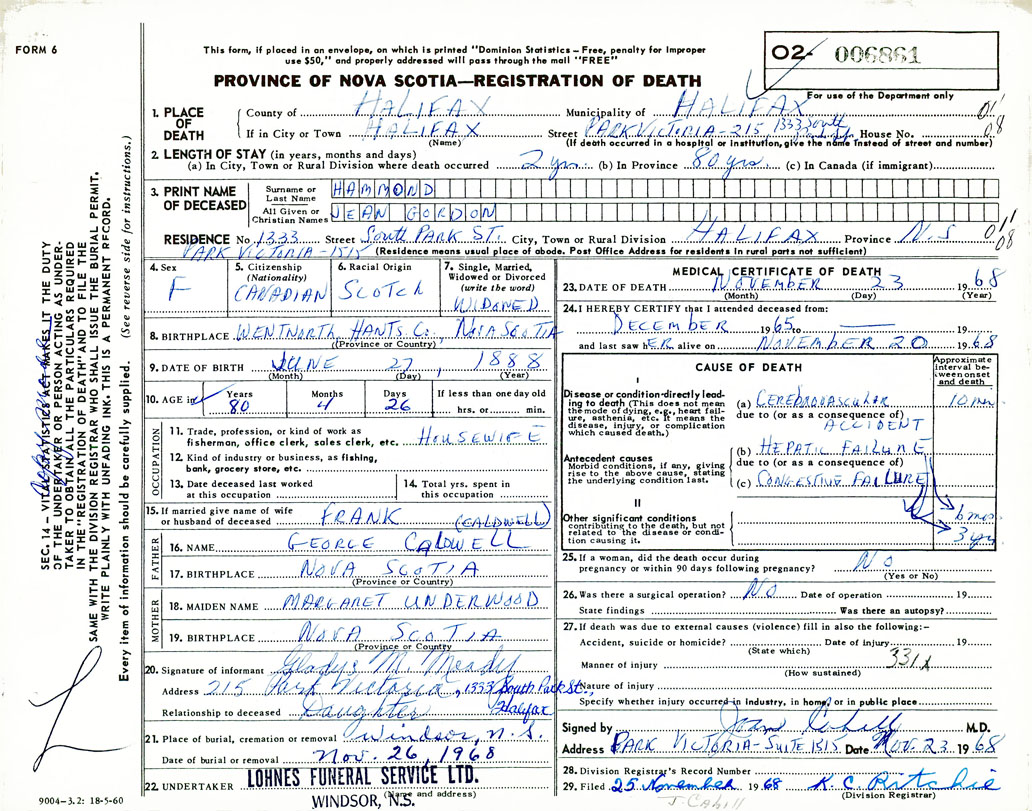 FORM 6
This form, if placed in an envelope, on which is printed "Dominion Statistics – Free, penalty for improper
use $50," and properly addressed will pass through the mail "FREE"
PROVINCE OF NOVA SCOTIA—REGISTRATION OF DEATH
02- 006861
For use of the Department only
1. PLACE OF DEATH
County of HALIFAX Municipality of HALIFAX 01
If in City or Town HALIFAX Street PARK VICTORIA-215, 1333 South Park St House No. 08
(Name) (If death occurred in a hospital or institution, give the name instead of street and number)
2. LENGTH OF STAY (in years, months and days)
(a) In City, Town or Rural Division where death occurred 2 yrs. (b) In Province 80 yrs. (c) In Canada (if immigrant)
3. PRINT NAME OF DECEASED
Surname or Last Name HAMMOND
All Given or Christian Names JEAN GORDON
RESIDENCE No. 1333 Street South PARK ST. City, Town or Rural Division HALIFAX Province N.S 01 08
PARK VICTORIA-1515 (Residence means usual place of abode. Post Office Address for residents in rural parts not sufficient)
4. Sex
F
5. Citizenship (Nationality)
CANADIAN
6. Racial Origin
SCOTCH
7. Single, Married, Widowed or Divorced (write the word)
WIDOWED
8. BIRTHPLACE WENTWORTH, HANTS C., NOVA SCOTIA
(Province or Country)
9. DATE OF BIRTH JUNE 27, 1888
(Month) (Day) (Year)
10. AGE in Years 80 Months 4 Days 26 If less than one day old hrs. or min.
OCCUPATION
11. Trade, profession, or kind of work as
fisherman, office clerk, sales clerk, etc. HOUSEWIFE
12. Kind of industry or business, as fishing,
bank, grocery store, etc.
13. Date deceased last worked at this occupation
14. Total yrs. spent in this occupation
15. If married give name of wife
or husband of deceased FRANK (CALDWELL)
FATHER
16. NAME GEORGE CALDWELL
17. BIRTHPLACE NOVA SCOTIA
(Province or Country)
MOTHER
18. MAIDEN NAME MARGARET UNDERWOOD
19. BIRTHPLACE NOVA SCOTIA
(Province or Country)
20. Signature of informant Gladys M.
Address 215 Park Victoria, 1333 South Park St., Halifax
Relationship to deceased Daughter
21. Place of burial, cremation or removal Windsor, N.S.
Date of burial or removal Nov. 26, 1968
22. UNDERTAKER LOHNES FUNERAL SERVICE LTD.
(Name and address)
WINDSOR, N.S.
9004-3.2: 18-5-60
MEDICAL CERTIFICATE OF DEATH
23. DATE OF DEATH NOVEMBER 23 1968
(Month) (Day) (Year)
24. I HEREBY CERTIFY that I attended deceased from:
DECEMBER 1965 to — 19
and last saw hER alive on NOVEMBER 20 1968
CAUSE OF DEATH
Approximate interval between onset and death
I
Disease or condition directly leading to death (This does not mean the mode of dying, e.g., heart failure, asthenia, etc. It means the disease, injury, or complication which caused death.)
(a) CEREBROVASCULAR ACCIDENT
due to (or as a consequence of)
Antecedent causes
Morbid conditions, if any, giving rise to the above cause, stating the underlying condition last.
(b) HEPATIC FAILURE
due to (or as a consequence of)
(c) CONGESTIVE FAILURE
II
Other significant conditions
contributing to the death, but not related to the disease or condition causing it.
6 mos
3 yrs
25. If a woman, did the death occur during
pregnancy or within 90 days following pregnancy? NO
(Yes or No)
26. Was there a surgical operation? NO Date of operation 19
State findings Was there an autopsy?
27. If death was due to external causes (violence) fill in also the following:–
Accident, suicide or homicide? Date of injury 19
(State which)
Manner of injury 331X
(How sustained)
Nature of injury
Specify whether injury occurred in industry, in home, or in public place
Signed by Joan Cahill M.D.
Address PARK VICTORIA-SUITE 1515 Date Nov. 23 1968
28. Division Registrar's Record Number
29. Filed 25 November 1968 K. C. Ritchie
(Division Registrar)
J. Cahill
SEC. 14 – VITAL STATISTICS ACT MAKES IT THE DUTY
OF THE UNDERTAKER OR PERSON ACTING AS UNDER-
TAKER TO OBTAIN ALL THE PARTICULARS REQUIRED
IN THE "REGISTRATION OF DEATH" AND TO FILE THE
SAME WITH THE DIVISION REGISTRAR WHO SHALL ISSUE THE BURIAL PERMIT.
WRITE PLAINLY WITH UNFADING INK. THIS IS A PERMANENT RECORD.
Every item of information should be carefully supplied. (See reverse side for instructions.)